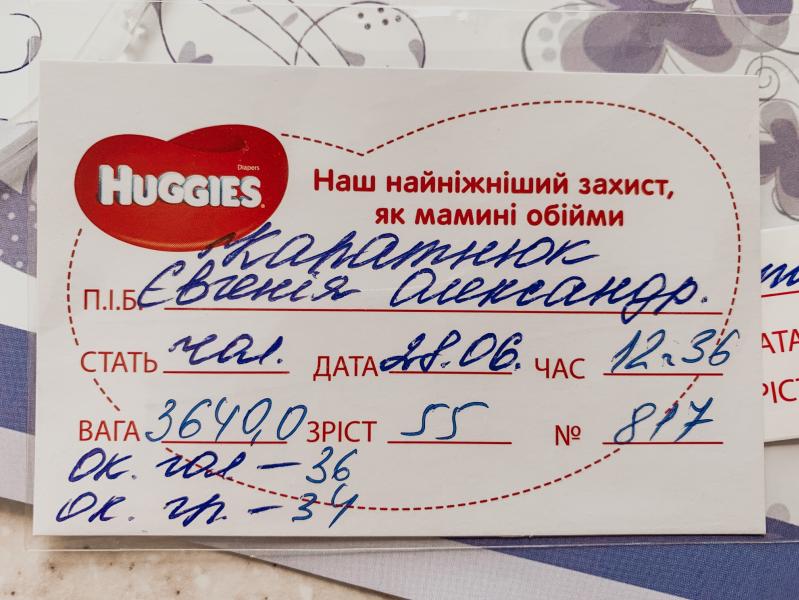 Diapers
HUGGIES
Наш найніжніший захист,
як мамині обійми
Каратнюк
П.І.Б. Євгенія Олександр.
СТАТЬ чол. ДАТА 28.06. ЧАС 12ч36
ВАГА 3640,0 ЗРІСТ 55 № 817
ок. гол – 36
ок. гр. – 34
АТА
РІСТ